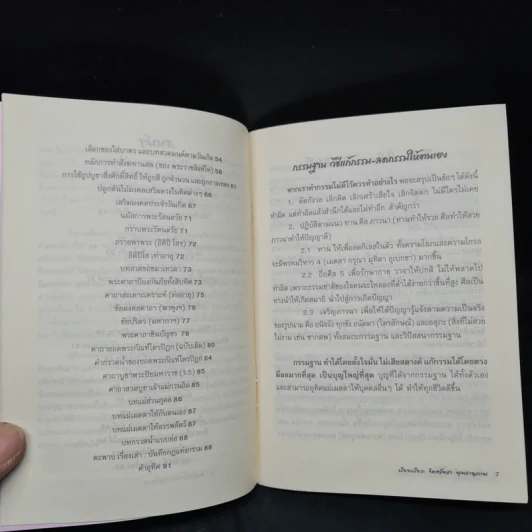 เลือกของใส่บาตร และบทสวดมนต์ตามวันเกิด 54
หลักการทำสังฆทานสด (ของ พระราชสิงห์โต) 60
การใช้ธูปบูชาสิ่งศักดิ์สิทธิ์ ให้ถูกสี ถูกจำนวน และถูกกาลเทศะ 61
ปลูกต้นไม้มงคลเสริมดวงในทิศต่างๆ 66
เสริมมงคลประจำวันเกิด 67
นมัสการพระรัตนตรัย 71
กราบพระรัตนตรัย 71
ถวายพรพระ (อิติปิ โสฯ) 72
อิติปิโส เท่าอายุ 72
บทสวดชุมนุมเทวดา 73
พระคาถาป้องกันภัยทั้งสิบทิศ 73
คาถาสะเดาะเคราะห์ (ต่ออายุ) 75
ชัยมงคลคาถา (พาหุงฯ) 76
ชัยปริตร (มหากาฯ) 77
พระคาถาชินบัญชร 78
คาถายอดพระกัณฑ์ไตรปิฎก (ฉบับเดิม) 80
คำกรวดน้ำของยอดพระกัณฑ์ไตรปิฎก 84
คาถาบูชาพระปิยมหาราช (ร.5) 85
คาถาสวดบูชาเจ้าแม่กวนอิม 85
บทแม่ส่วนกุศล 86
บทแผ่เมตตาให้กับตนเอง 87
บทแผ่เมตตาให้สรรพสัตว์ 87
บทกรวดน้ำแบบย่อ 87
ตะพาบ เรื่องเล่า : บันทึกกฎแห่งกรรม 88
คำอุทิศ 91
กรรมฐาน วิธีแก้กรรม-ลดกรรมให้ตนเอง
หากเราทำกรรมไม่ดีไว้ควรทำอย่างไร พอจะสรุปเป็นข้อๆ ได้ดังนี้
1. ตัดกังวล เลิกคิด เลิกเศร้าเสียใจ เลิกจิตตก ไม่มีใครไม่เคย
ทำผิด แต่ทำผิดแล้วสำนึกได้และไม่ทำอีก สำคัญกว่า
2. ปฏิบัติตามแนว ทาน ศีล ภาวนา (ทานทำให้รวย ศีลทำให้สวย
ภาวนาทำให้ปัญญาดี)
2.1 ทาน ให้เพื่อลดกิเลสในตัว ทั้งความโลภและความโกรธ
จะมีพรหมวิหาร 4 (เมตตา กรุณา มุทิตา อุเบกขา) มากขึ้น
2.2 ถือศีล 5 เพื่อรักษากาย วาจาให้ปกติ ไม่ให้พลาดไป
ทำผิด เพราะธรรมชาติของใจคนจะไหลลงที่ต่ำได้ง่ายกว่าขึ้นที่สูง ศีลเป็น
ทางนำให้เกิดสมาธิ นำไปสู่การเกิดปัญญา
2.3 เจริญภาวนา เพื่อให้ได้ปัญญารู้แจ้งตามความเป็นจริง
ของรูปนาม คือ อนิจจัง ทุกขัง อนัตตา (ไตรลักษณ์) และอสุภะ (สิ่งที่ไม่สวย
ไม่งาม เช่น ซากศพ) ทั้งสมถกรรมฐาน และวิปัสสนากรรมฐาน
กรรมฐาน ทำได้โดยตั้งใจมั่น ไม่เสียสตางค์ แก้กรรมได้โดยตรง
มีผลมากที่สุด เป็นบุญใหญ่ที่สุด บุญที่ได้จากกรรมฐาน ได้ทั้งตัวเอง
และสามารถอุทิศแผ่เมตตาให้บุคคลอื่นๆ ได้ ทำให้ทุกชีวิตดีขึ้น
เรียบเรียง: จิตตรัตนา พุทธานุภาพ 7